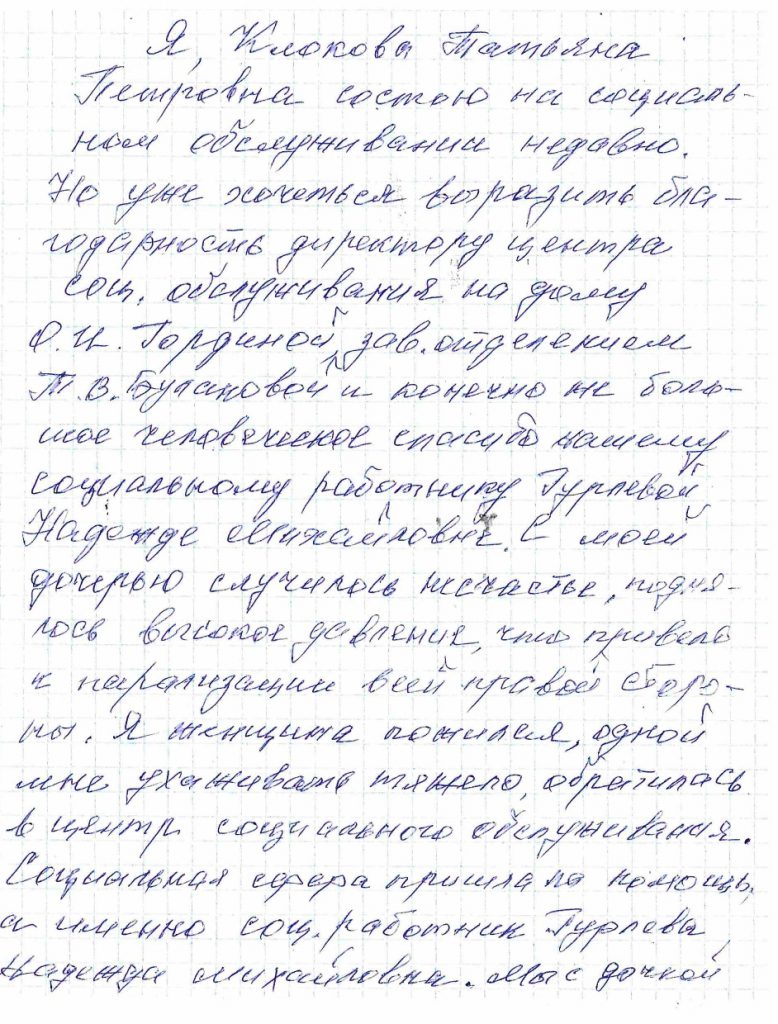 Я, Клокова Татьяна
Петровна состою на социаль-
ном обслуживании недавно.
Но уже хочеться выразить бла-
годарность директору центра
соц. обслуживания на дому
О.И. Гординой, зав. отделением
Т.В. Булановой и конечно же боль-
шое человеческое спасибо нашему
социальному работнику Гурлевой
Надежде Михайловне. С моей
дочерью случилось несчастье, подня-
лось высокое давление, что привело
к парализации всей правой сторо-
ны. Я женщина пожилая, одной
мне ухаживать тяжело, обратилась
в центр социального обслуживания.
Социальная сфера пришла на помощь,
а именно соц. работник Гурлева
Надежда Михайловна. Мы с дочкой